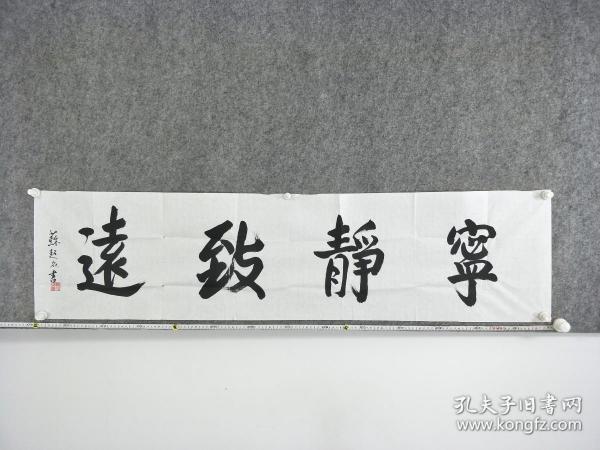 寧靜致遠
蘇
書
孔夫子旧书网
www.kongfz.com